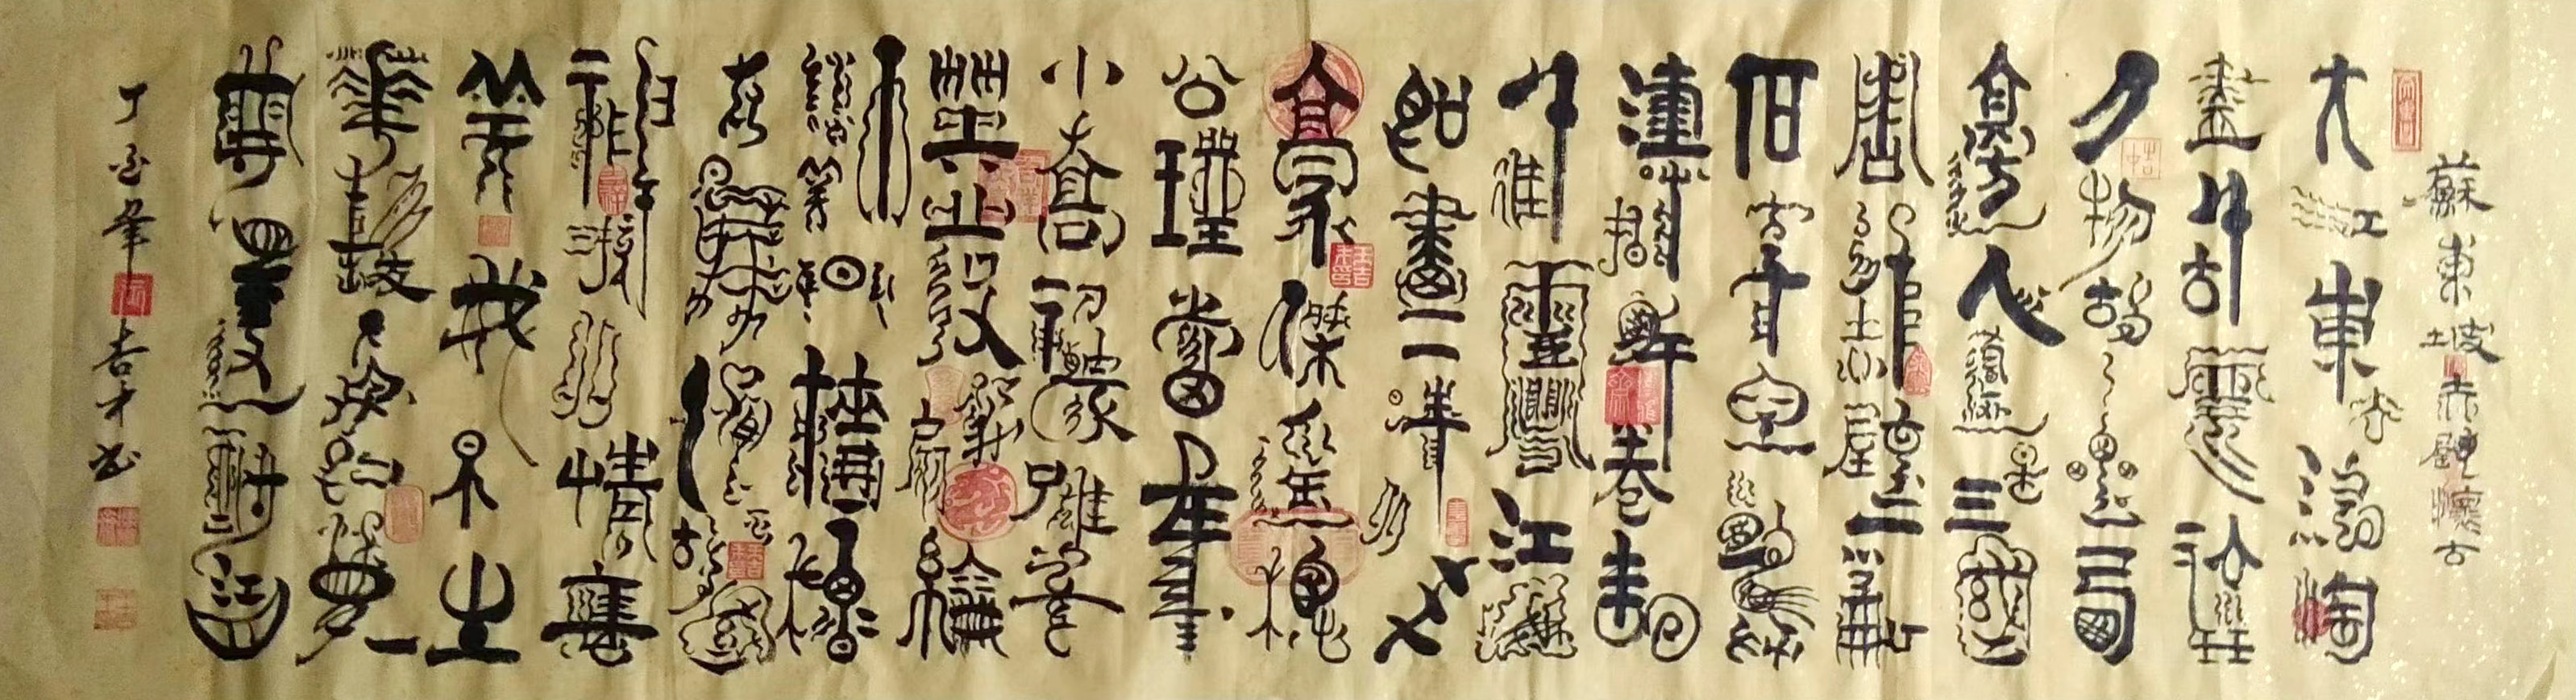 蘇東坡赤壁懷古
大江東去浪淘
盡千古風流
人物故壘西
邊人道是三國
周郎赤壁亂
石穿空驚
濤拍岸卷起
千堆雪江山
如畫一時多少
豪傑遙想
公瑾當年
小喬初嫁了雄姿
英發羽扇綸
巾談笑間檣櫓
灰飛煙滅故國
神遊多情應
笑我早生
華髮人間如夢一
尊還酹江月
丁酉年吉才書